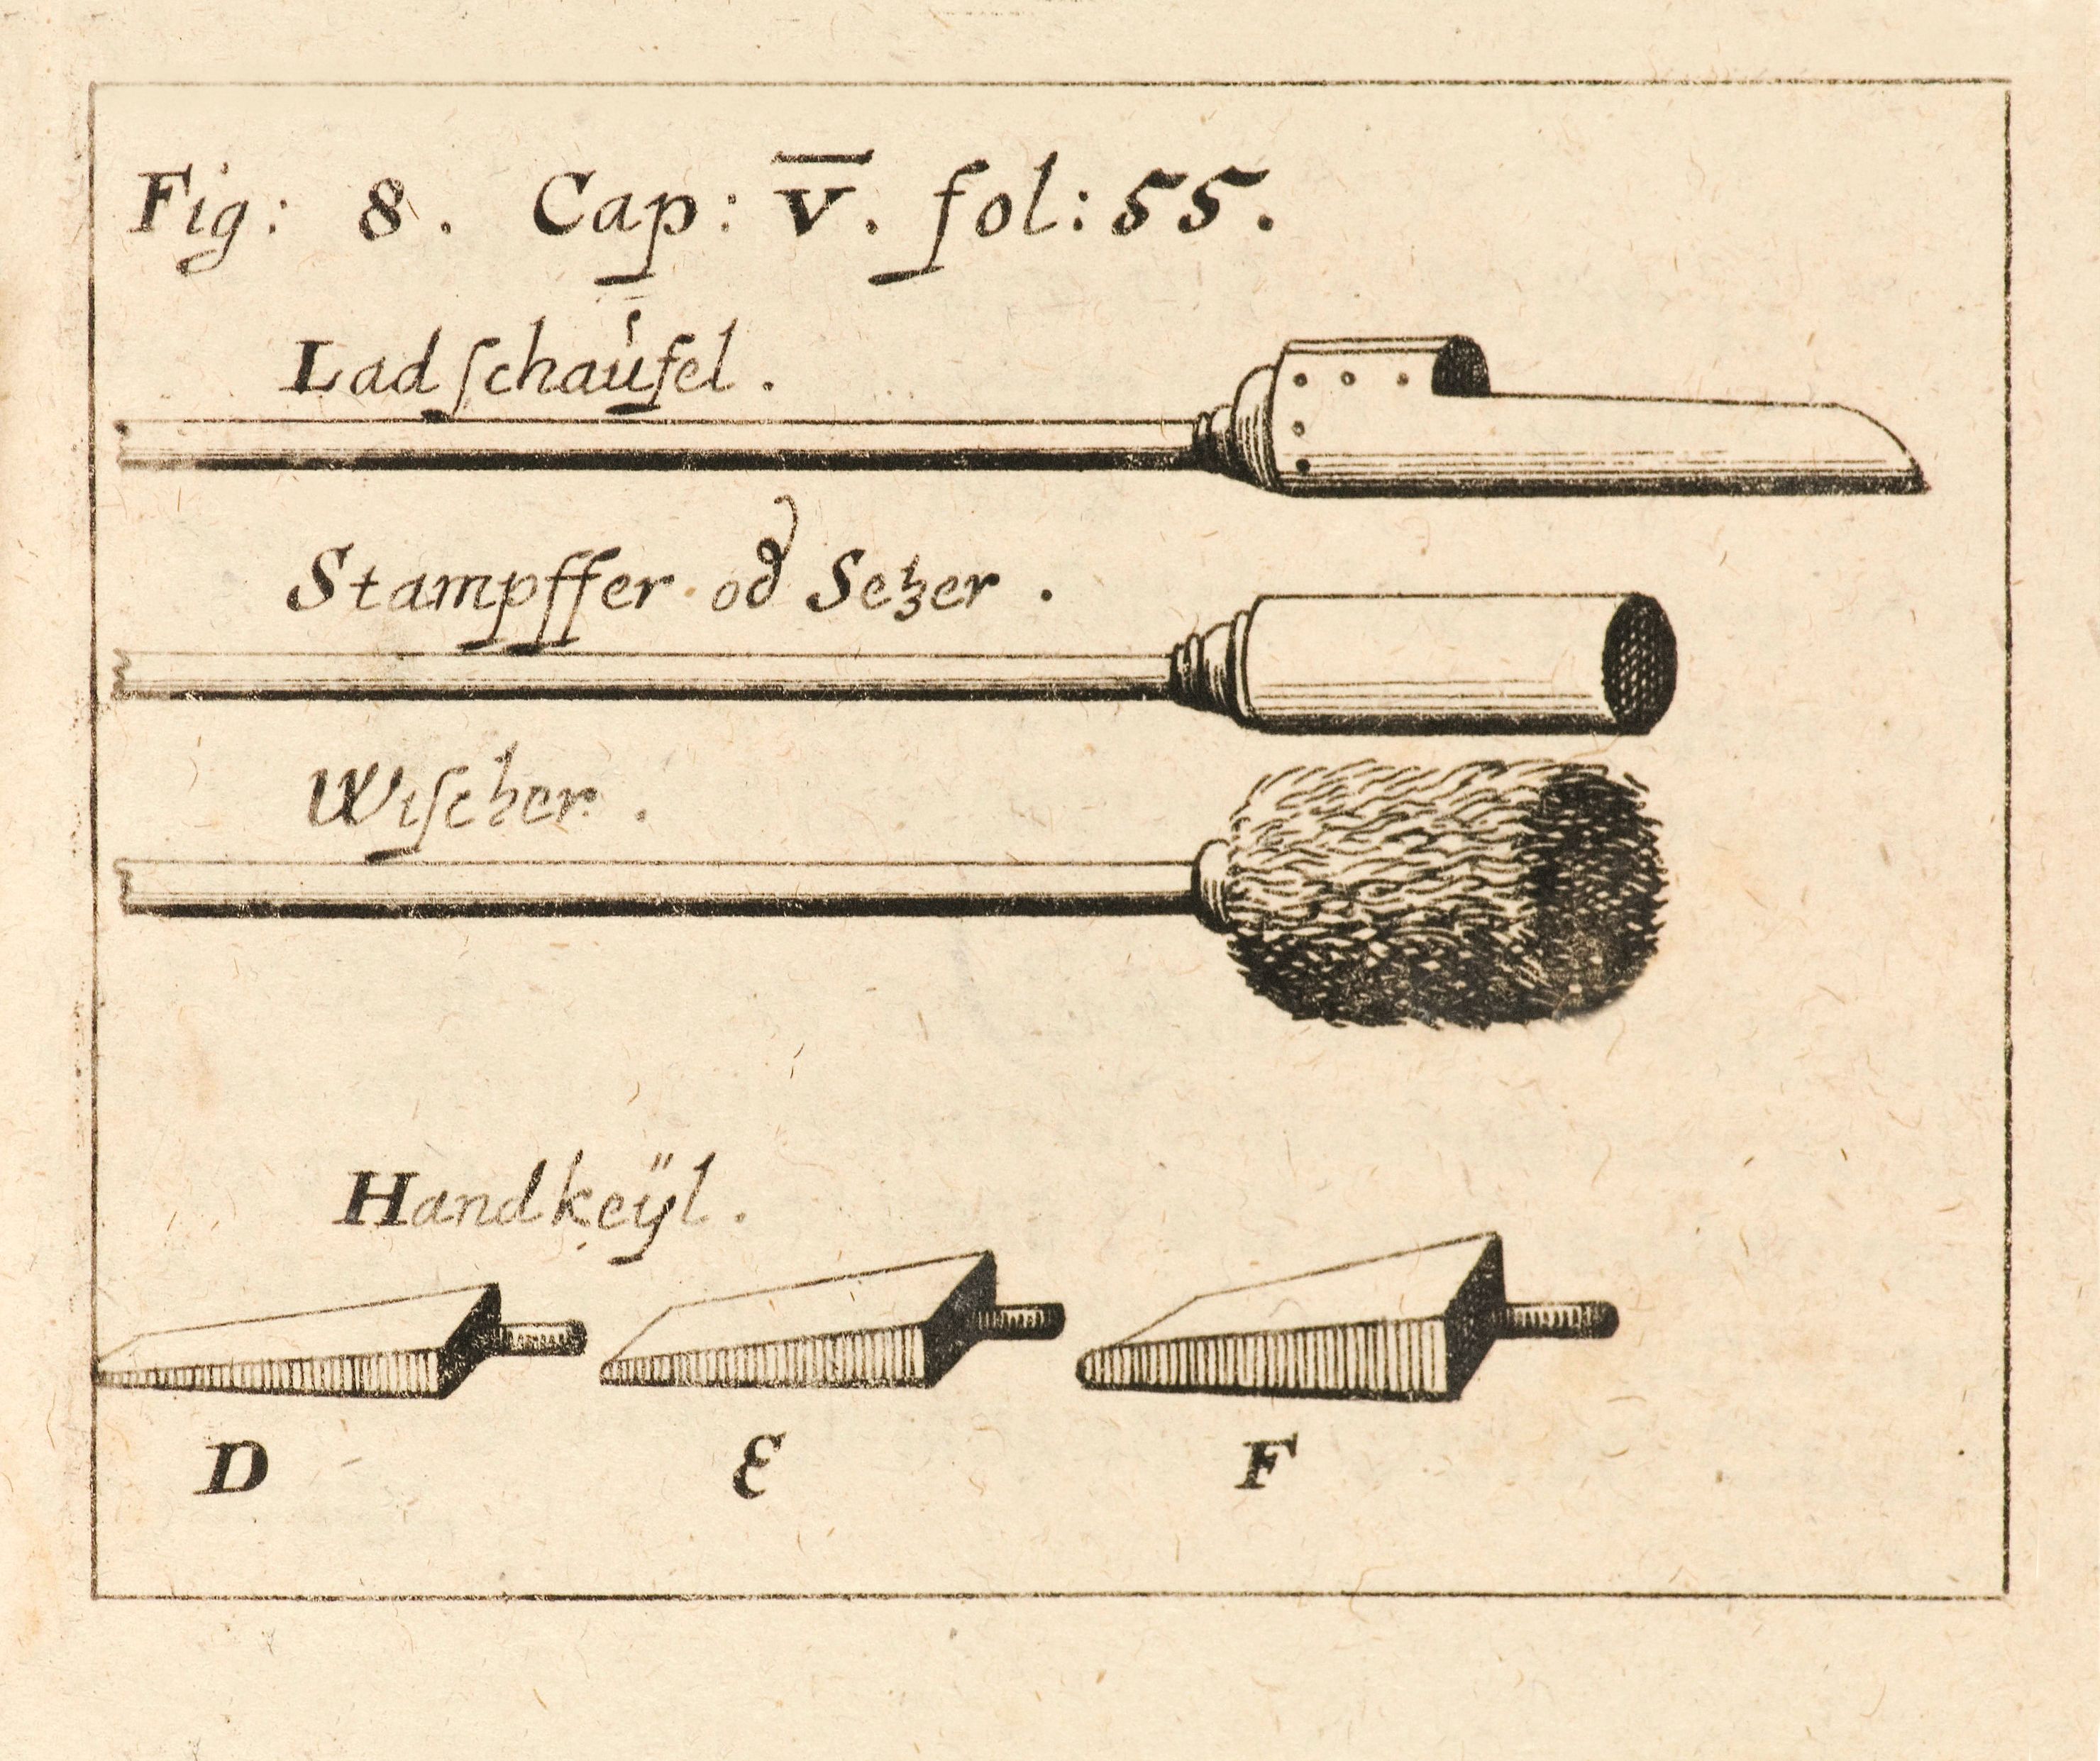 Fig: 8. Cap: V̅. fol: 55.
Ladſchaufel.
Stampffer od Setzer.
Wiſcher.
Handkeÿl.
D E F